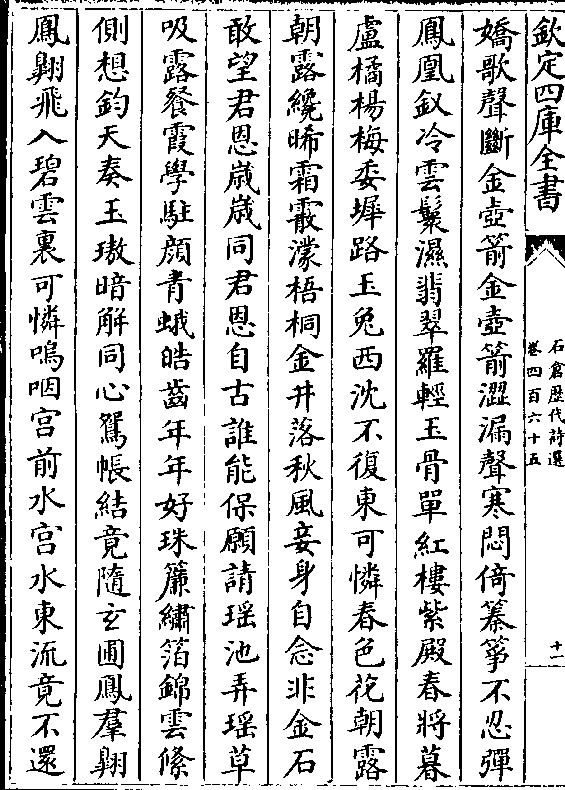 欽定四庫全書
石倉歷代詩選
卷四百六十五
十一
嬌歌聲斷金壺箭金壺箭澀漏聲寒悶倚秦箏不忍彈
鳳凰釵冷雲鬟濕翡翠羅輕玉骨單紅樓紫殿春將暮
盧橘楊梅委墀路玉兔西沈不復東可憐春色花朝露
朝露纔晞霜霰濛梧桐金井落秋風妾身自念非金石
敢望君恩歲歲同君恩自古誰能保願請瑶池弄瑶草
吸露餐霞學駐顔青蛾皓齒年年好珠簾繡箔錦雲絛
側想鈞天奏玉璈暗解同心鴛帳結竟隨玄圃鳳羣翺
鳳翺飛入碧雲裏可憐嗚咽宫前水宫水東流竟不還